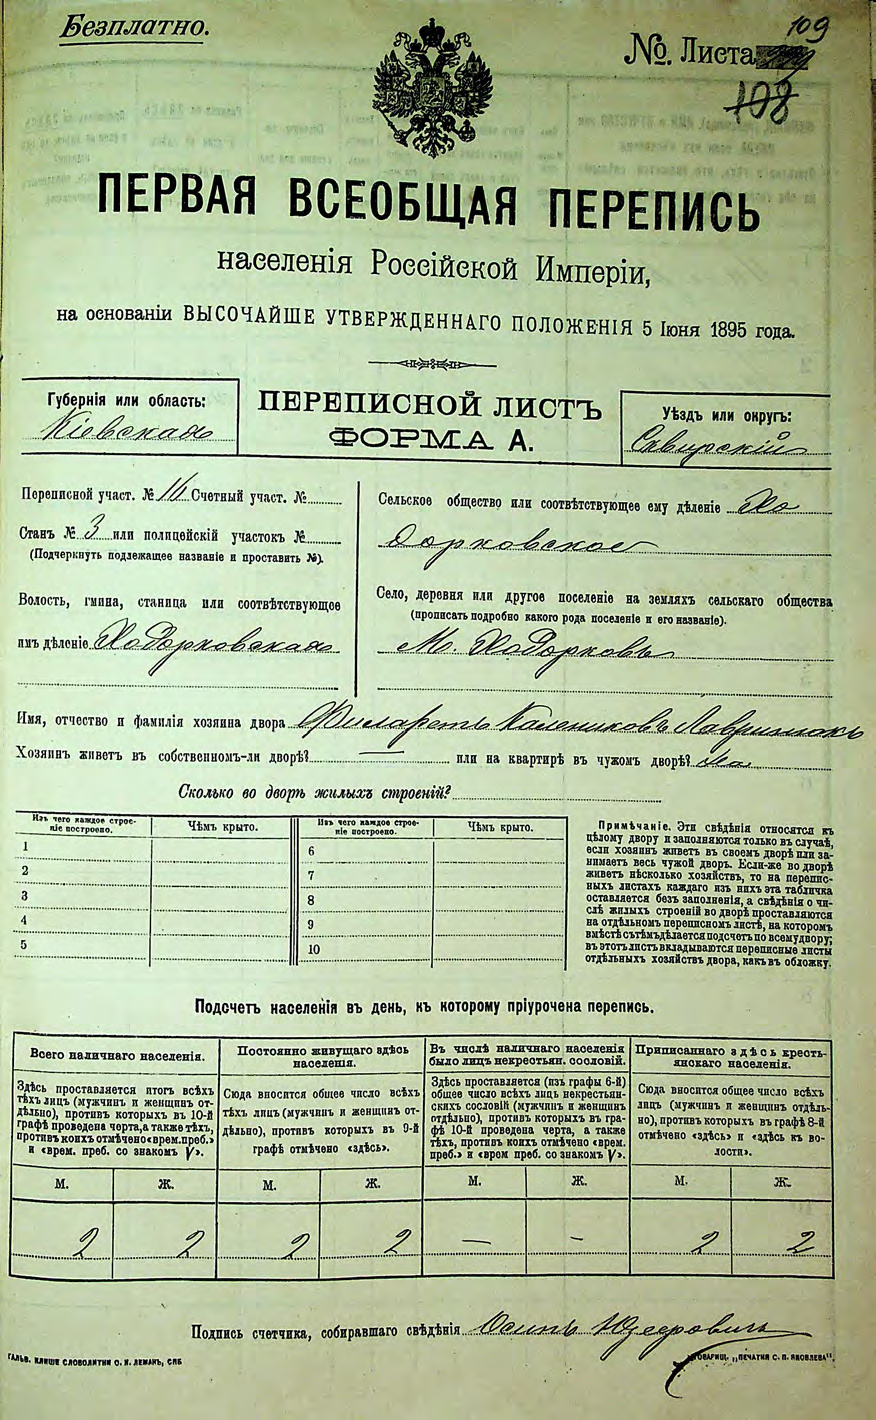 Безплатно.
№. Листа 109
108
ПЕРВАЯ ВСЕОБЩАЯ ПЕРЕПИСЬ
населенія Россійской Имперіи,
на основаніи ВЫСОЧАЙШЕ УТВЕРЖДЕННАГО ПОЛОЖЕНІЯ 5 Іюня 1895 года.
Губернія или область:
Кіевская
ПЕРЕПИСНОЙ ЛИСТЪ
ФОРМА А.
Уѣздъ или округъ:
Сквирскій
Переписной участ. № Счетный участ. №
Станъ № 3 или полицейскій участокъ №
(Подчеркнуть подлежащее названіе и проставить №).
Волость, гмина, станица или соотвѣтствующее
имъ дѣленіе Ходорковская
Сельское общество или соотвѣтствующее ему дѣленіе Хо
дорковское
Село, деревня или другое поселеніе на земляхъ сельскаго общества
(прописать подробно какого рода поселеніе и его названіе).
М. Ходорковъ
Имя, отчество и фамилія хозяина двора Филаретъ Калениковъ
Хозяинъ живетъ въ собственномъ-ли дворѣ? — или на квартирѣ въ чужомъ дворѣ?
Сколько во дворѣ жилыхъ строеній?
Изъ чего каждое строе-
ніе построено.
Чѣмъ крыто.
Изъ чего каждое строе-
ніе построено.
Чѣмъ крыто.
1
2
3
4
5
6
7
8
9
10
Примѣчаніе. Эти свѣдѣнія относятся къ
цѣлому двору и заполняются только въ случаѣ,
если хозяинъ живетъ въ своемъ дворѣ или за-
нимаетъ весь чужой дворъ. Если-же во дворѣ
живетъ нѣсколько хозяйствъ, то на перепис-
ныхъ листахъ каждаго изъ нихъ эта табличка
оставляется безъ заполненія, а свѣдѣнія о чи-
слѣ жилыхъ строеній во дворѣ проставляются
на отдѣльномъ переписномъ листѣ, на которомъ
вмѣстѣ съ тѣмъ дѣлается подсчетъ по всему двору;
въ этотъ листъ вкладываются переписные листы
отдѣльныхъ хозяйствъ двора, какъ въ обложку.
Подсчетъ населенія въ день, къ которому пріурочена перепись.
Всего наличнаго населенія.
Здѣсь проставляется итогъ всѣхъ
тѣхъ лицъ (мужчинъ и женщинъ от-
дѣльно), противъ которыхъ въ 10-й
графѣ проведена черта, а также тѣхъ,
противъ коихъ отмѣчено «врем. преб.»
и «врем. преб. со знакомъ V».
Постоянно живущаго здѣсь
населенія.
Сюда вносится общее число всѣхъ
тѣхъ лицъ (мужчинъ и женщинъ от-
дѣльно), противъ которыхъ въ 9-й
графѣ отмѣчено «здѣсь».
Въ числѣ наличнаго населенія
было лицъ некрестьян. сословій.
Здѣсь проставляется (изъ графы 6-й)
общее число всѣхъ лицъ некрестьян-
скихъ сословій (мужчинъ и женщинъ
отдѣльно), противъ которыхъ въ гра-
фѣ 10-й проведена черта, а также
тѣхъ, противъ коихъ отмѣчено «врем.
преб.» и «врем преб. со знакомъ V».
Приписаннаго здѣсь кресть-
янскаго населенія.
Сюда вносится общее число всѣхъ
лицъ (мужчинъ и женщинъ отдѣль-
но), противъ которыхъ въ графѣ 8-й
отмѣчено «здѣсь» и «здѣсь къ во-
лости».
М. Ж. М. Ж. М. Ж. М. Ж.
2 2 2 2 — - 2 2
Подпись счетчика, собиравшаго свѣдѣнія Осипъ
ГАЛЬВ. КЛИШЕ СЛОВОЛИТНИ О. И. ЛЕМАНЪ, СПБ
ТОВАРИЩ. „ПЕЧАТНЯ С. П. ЯКОВЛЕВА".